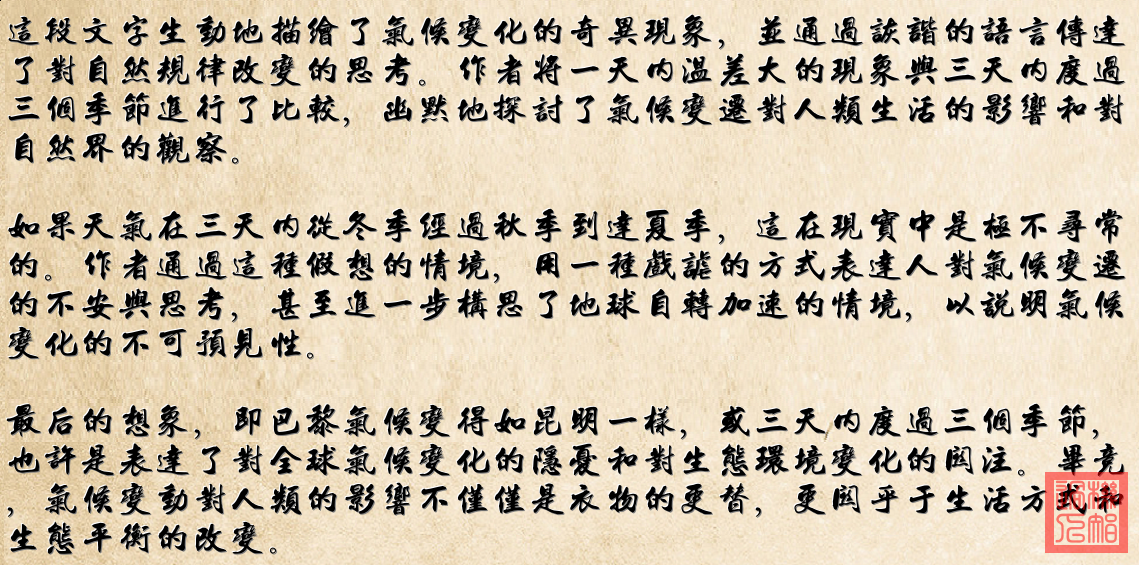 這段文字生動地描繪了氣候變化的奇異現象，並通過詼諧的語言傳達
了對自然規律改變的思考。作者將一天內溫差大的現象與三天內度過
三個季節進行了比較，幽默地探討了氣候變遷對人類生活的影響和對
自然界的觀察。
如果天氣在三天內從冬季經過秋季到達夏季，這在現實中是極不尋常
的。作者通過這種假想的情境，用一種戲謔的方式表達人對氣候變遷
的不安與思考，甚至進一步構思了地球自轉加速的情境，以説明氣候
變化的不可預見性。
最后的想象，即巴黎氣候變得如昆明一樣，或三天內度過三個季節，
也許是表達了對全球氣候變化的隱憂和對生態環境變化的関注。畢竟
，氣候變動對人類的影響不僅僅是衣物的更替，更関乎于生活方式和
生態平衡的改變。